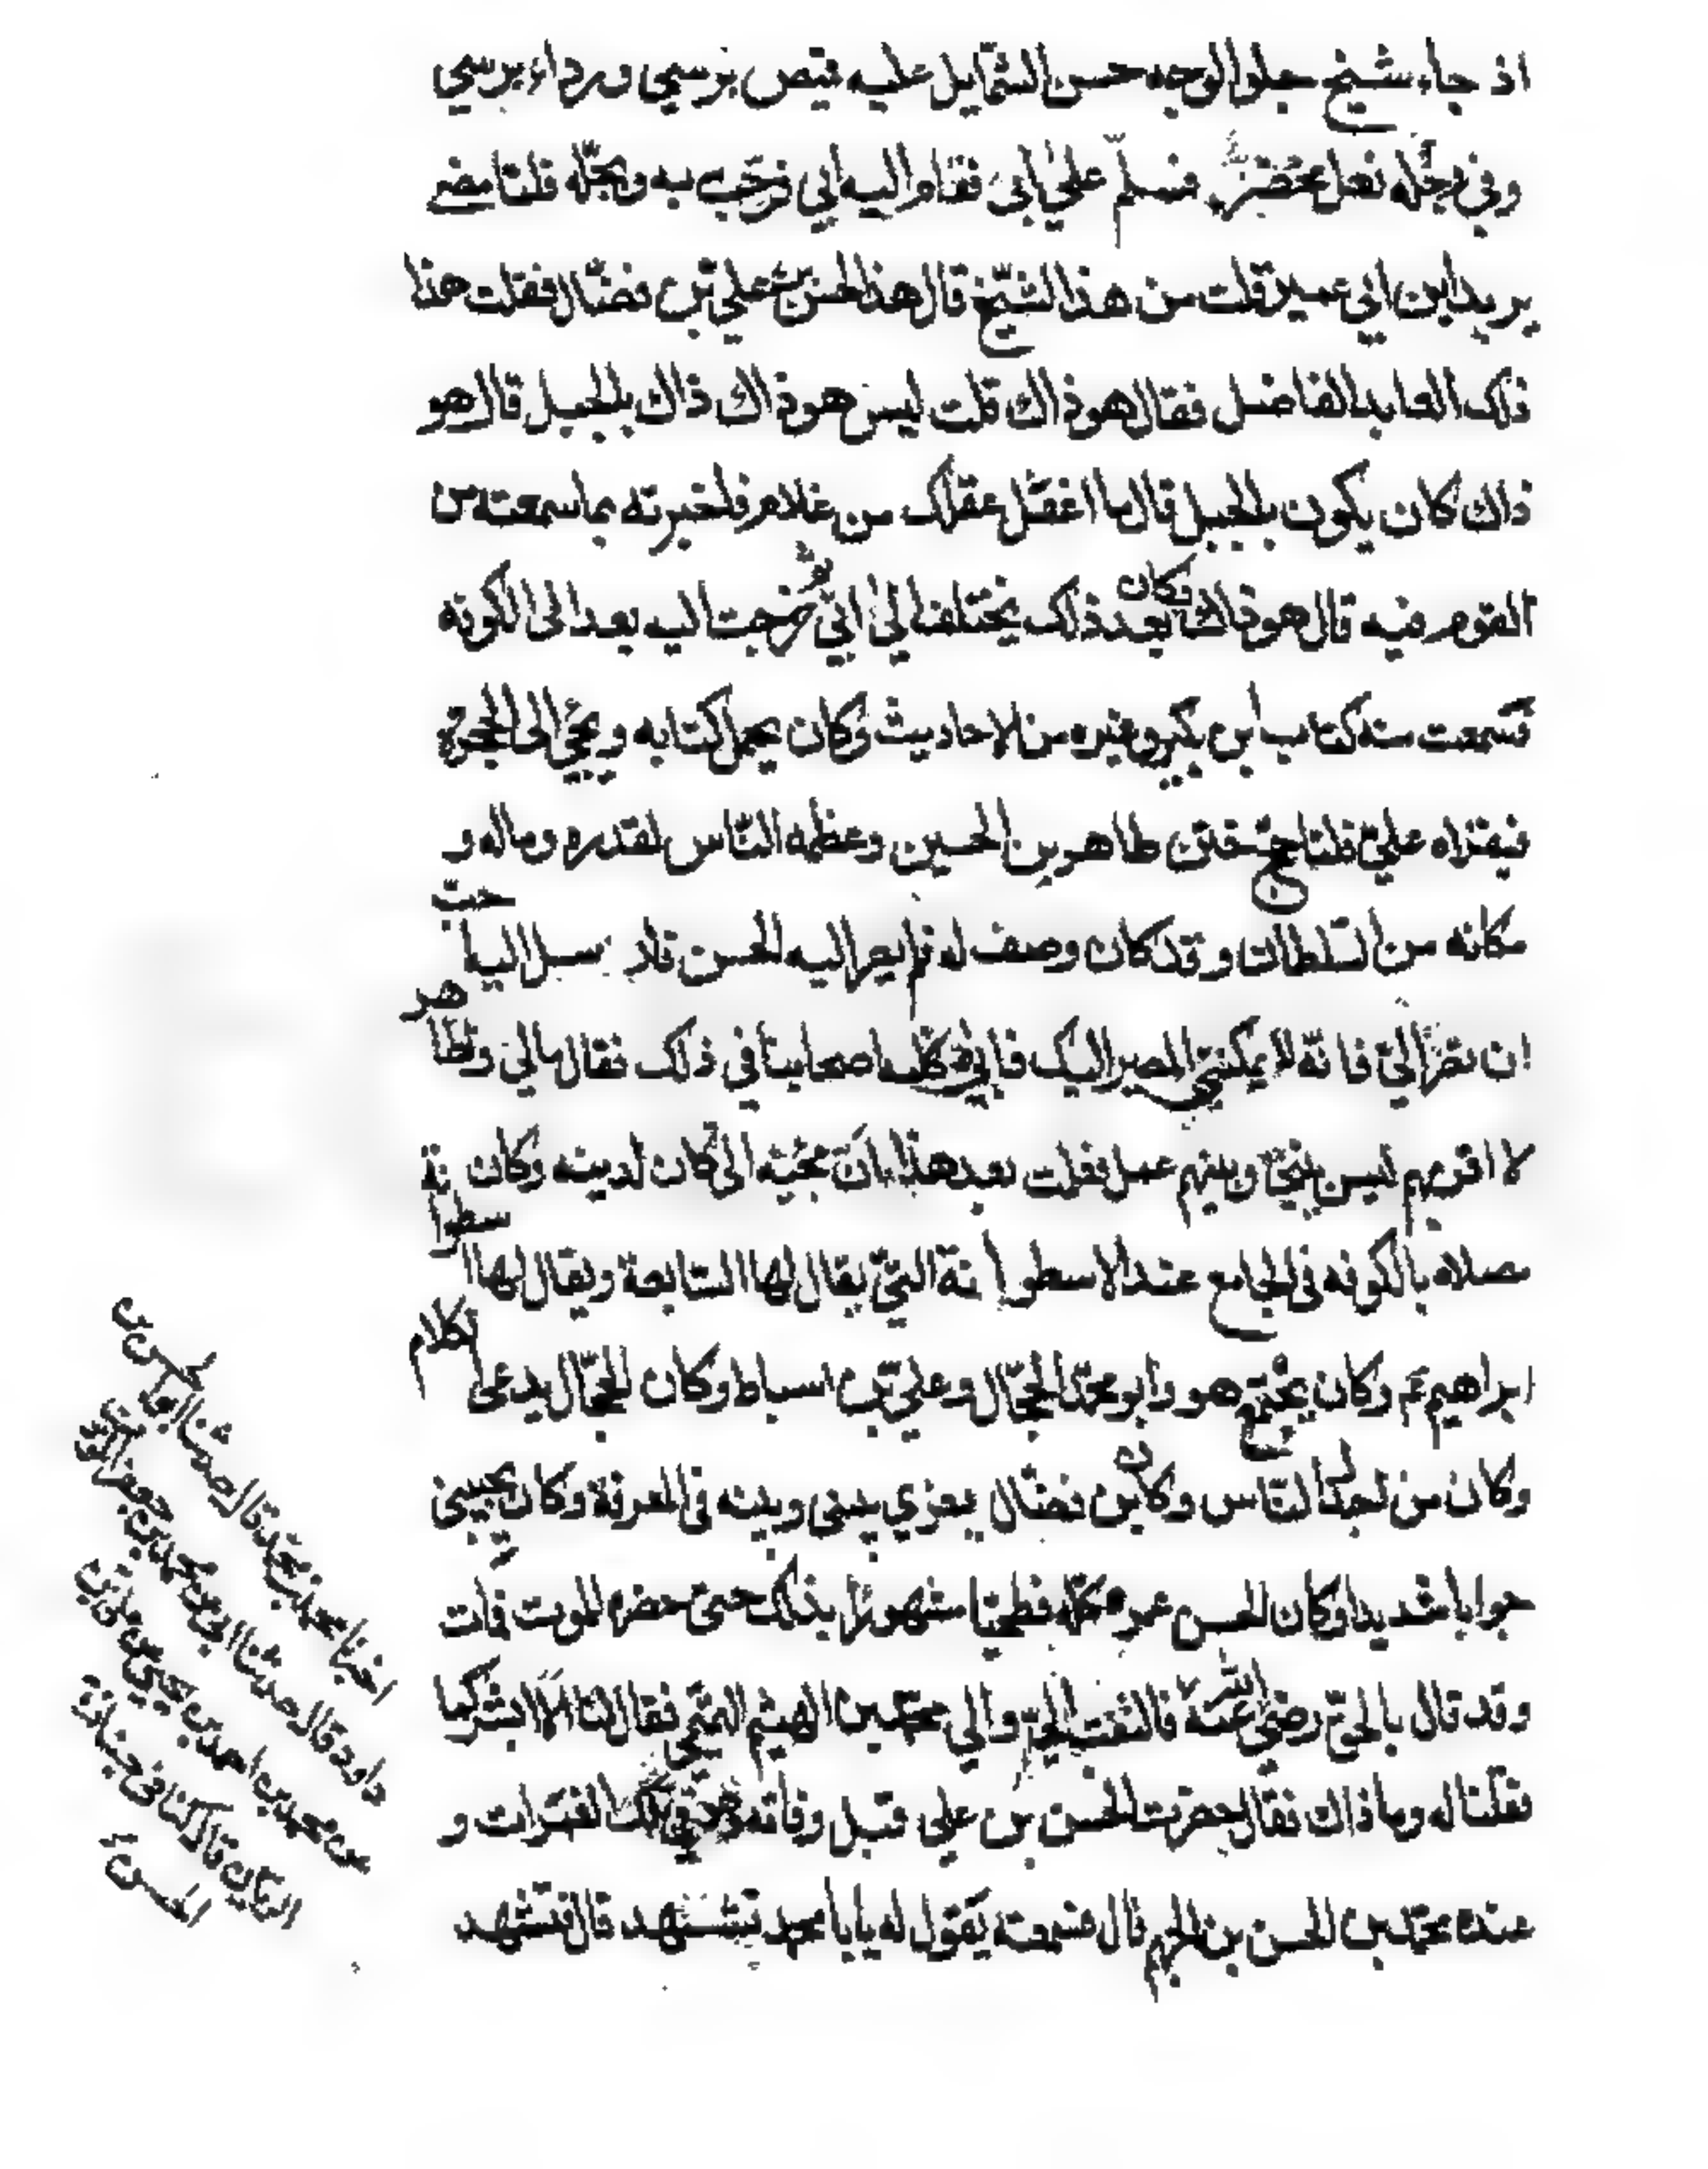 اذ جاء شيخ حلو الوجه حسن الشمايل عليه قميص نرسي ورداء نرسي
وفي رجله نعل مخصّر فسلّم على ابي فقام اليه ابي فرحّب به وبجّله فلما مضى
يريد ابن ابي عمير قلت من هذا الشيخ قال هذا الحسن بن علي بن فضّال فقلت هذا
ذلك العابد الفاضل فقال هو ذاك قلت ليس هو ذاك ذاك بالجبل قال هو
ذاك كان يكون بالجبل قال ما اغفل عقلك من غلام فاخبرته بما سمعته من
القوم فيه قال هو ذاك فكان بعد ذلك يختلف الى ابي ثم خرجت اليه بعد الى الكوفه
فسمعت منه كتاب ابن بكير وغيره من الاحاديث وكان يحمل كتابه ويجي الى الحجرة
فيقراه عليّ فلما حج ختن طاهر بن الحسين وعظمه الناس لقدره وماله و
مكانه من السلطان وقد كان وصف له فلم يصر اليه الحسن فارسل اليه احبّ
ان تصير اليّ فانه لا يمكنني المصير اليك فابى وكلمه اصحابنا في ذلك فقال مالي ولطاهر
لا اقربهم ليس بيني وبينهم عمل فعلمت بعد هذا ان مجيئه اليّ كان لدينه وكان
مصلاه بالكوفه في الجامع عند الاسطوانة التي يقال لها السابعة ويقال لها اسطوانة
ابراهيم ع م وكان يجتمع هو وابو محمد الحجّال وعلي بن اسباط وكان الحجّال يدعي الكلام
وكان من اجدل الناس وكان ابن فضّال يغري بيني وبينه في المعرفة وكان يجيبني
جوابا شديدا وكان الحسن عمره كله فطحيا مشهورا بذلك حتى حضره الموت فمات
وقد قال بالحق رضي الله عنه فالتفت اليّ والي محمد بن الهيثم التميمي فقال لنا الا ابشركما
فقلنا له وما ذاك فقال حضرت الحسن بن علي قبل وفاته وهو في تلك الغمرات و
عنده محمد بن الحسن بن الجهم قال فسمعته يقول له يا با محمد تشهد قال فتشهد
اخبرنا محمد بن محمد قال حدثنا ابو الحسن بن
داود قال حدثنا ابي عن محمد بن جعفر المؤدب
عن محمد بن احمد بن يحيى عن علي بن
الريان قال كنا في جنازة
الحسن